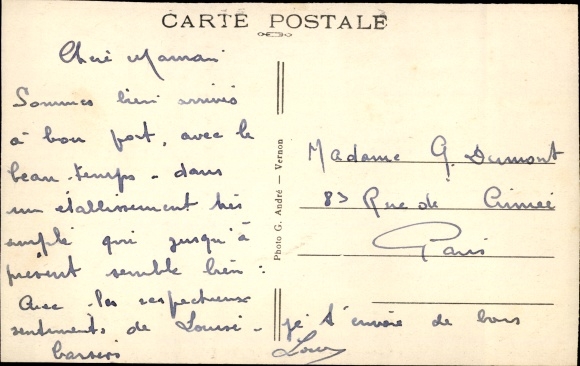 CARTE POSTALE
Chère Maman
Sommes bien arrivés
à bon port, avec le
beau temps - dans
un établissement très
simple qui jusqu'à
présent semble bien :
Avec les respectueux
sentiments de Louise -
je t'envoie de bons
baisers
Photo G. André — Vernon
Madame G. Dumont
83 Rue de Crimée
Paris